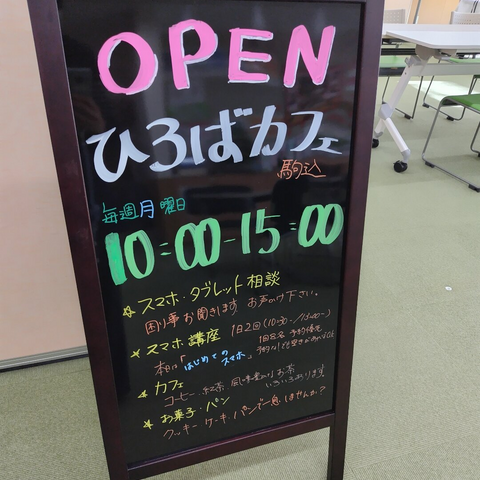 OPEN
ひろばカフェ
駒込
毎週月曜日
10:00-15:00
☆スマホ・タブレット相談
困り事お聞きします お声かけ下さい。
☆スマホ講座 1日2回(10:30~/13:00~)
1回8名 予約優先
本日は「はじめてのスマホ」
☆カフェ
コーヒー、紅茶、お茶
いろいろあります
☆お菓子・パン
クッキー、ケーキ、パンで一息しませんか?